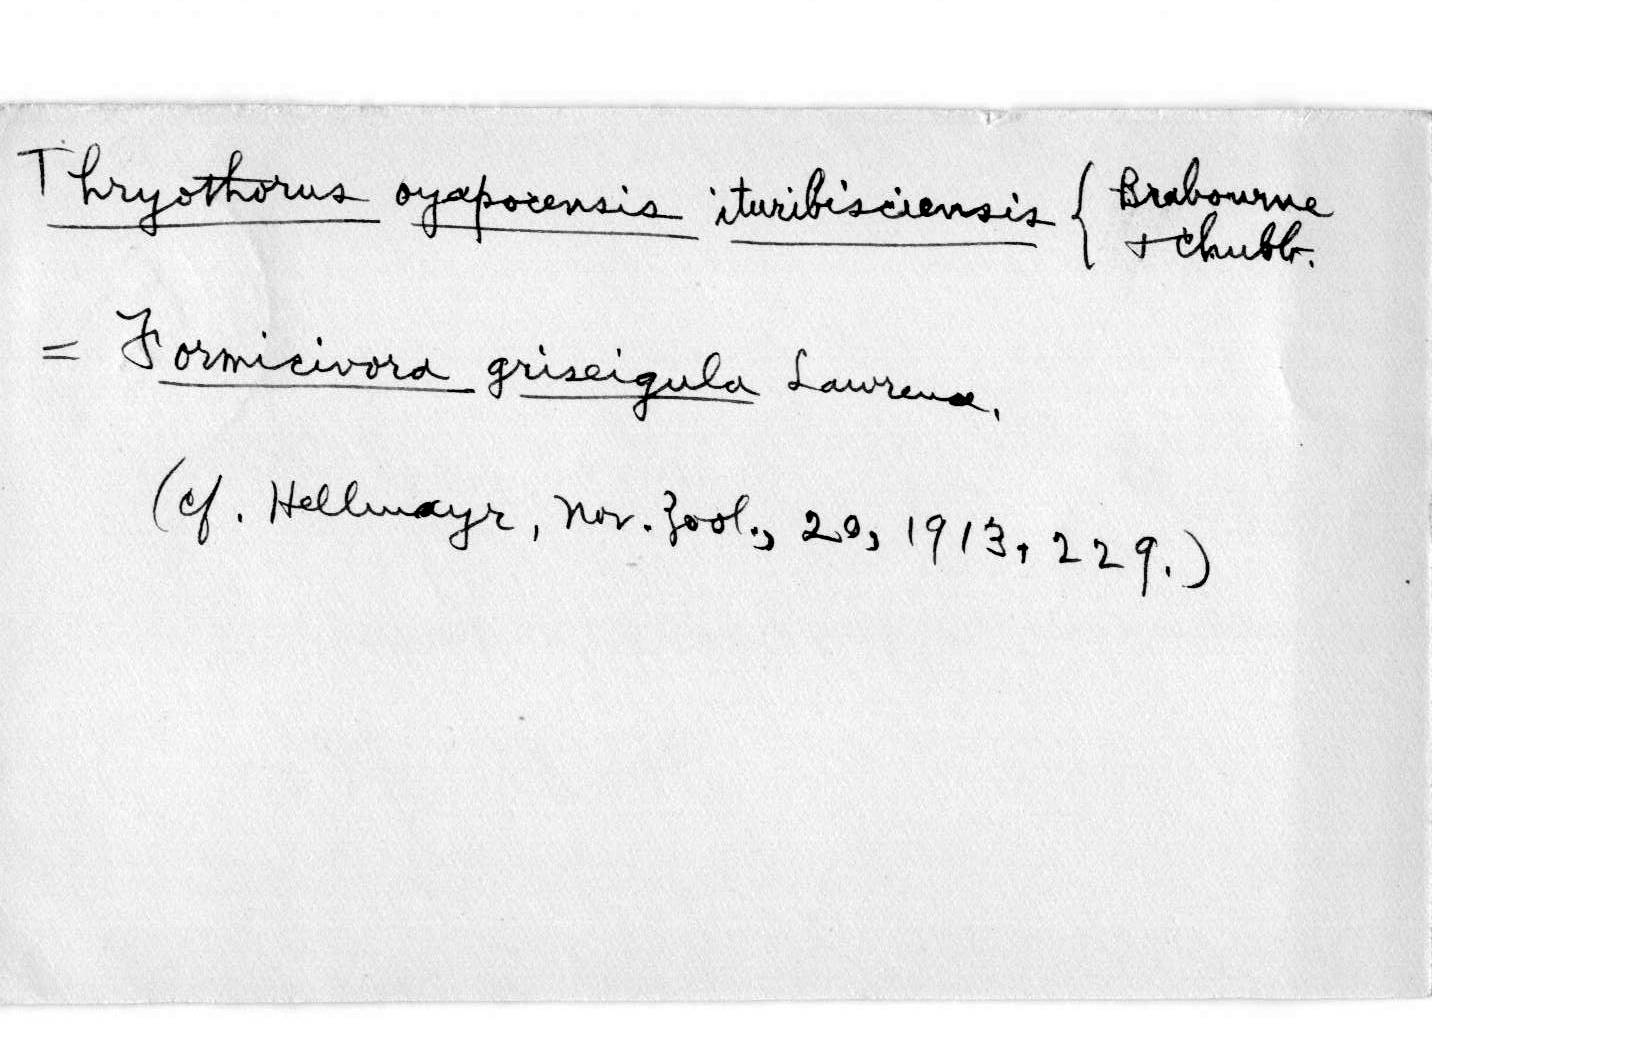 Thryothorus oyapocensis ituribisciensis { Brabourne
+ Chubb.
= Formicivora griseigula Lawrence.
(cf. Hellmayr, Nov. Zool., 20, 1913, 229.)